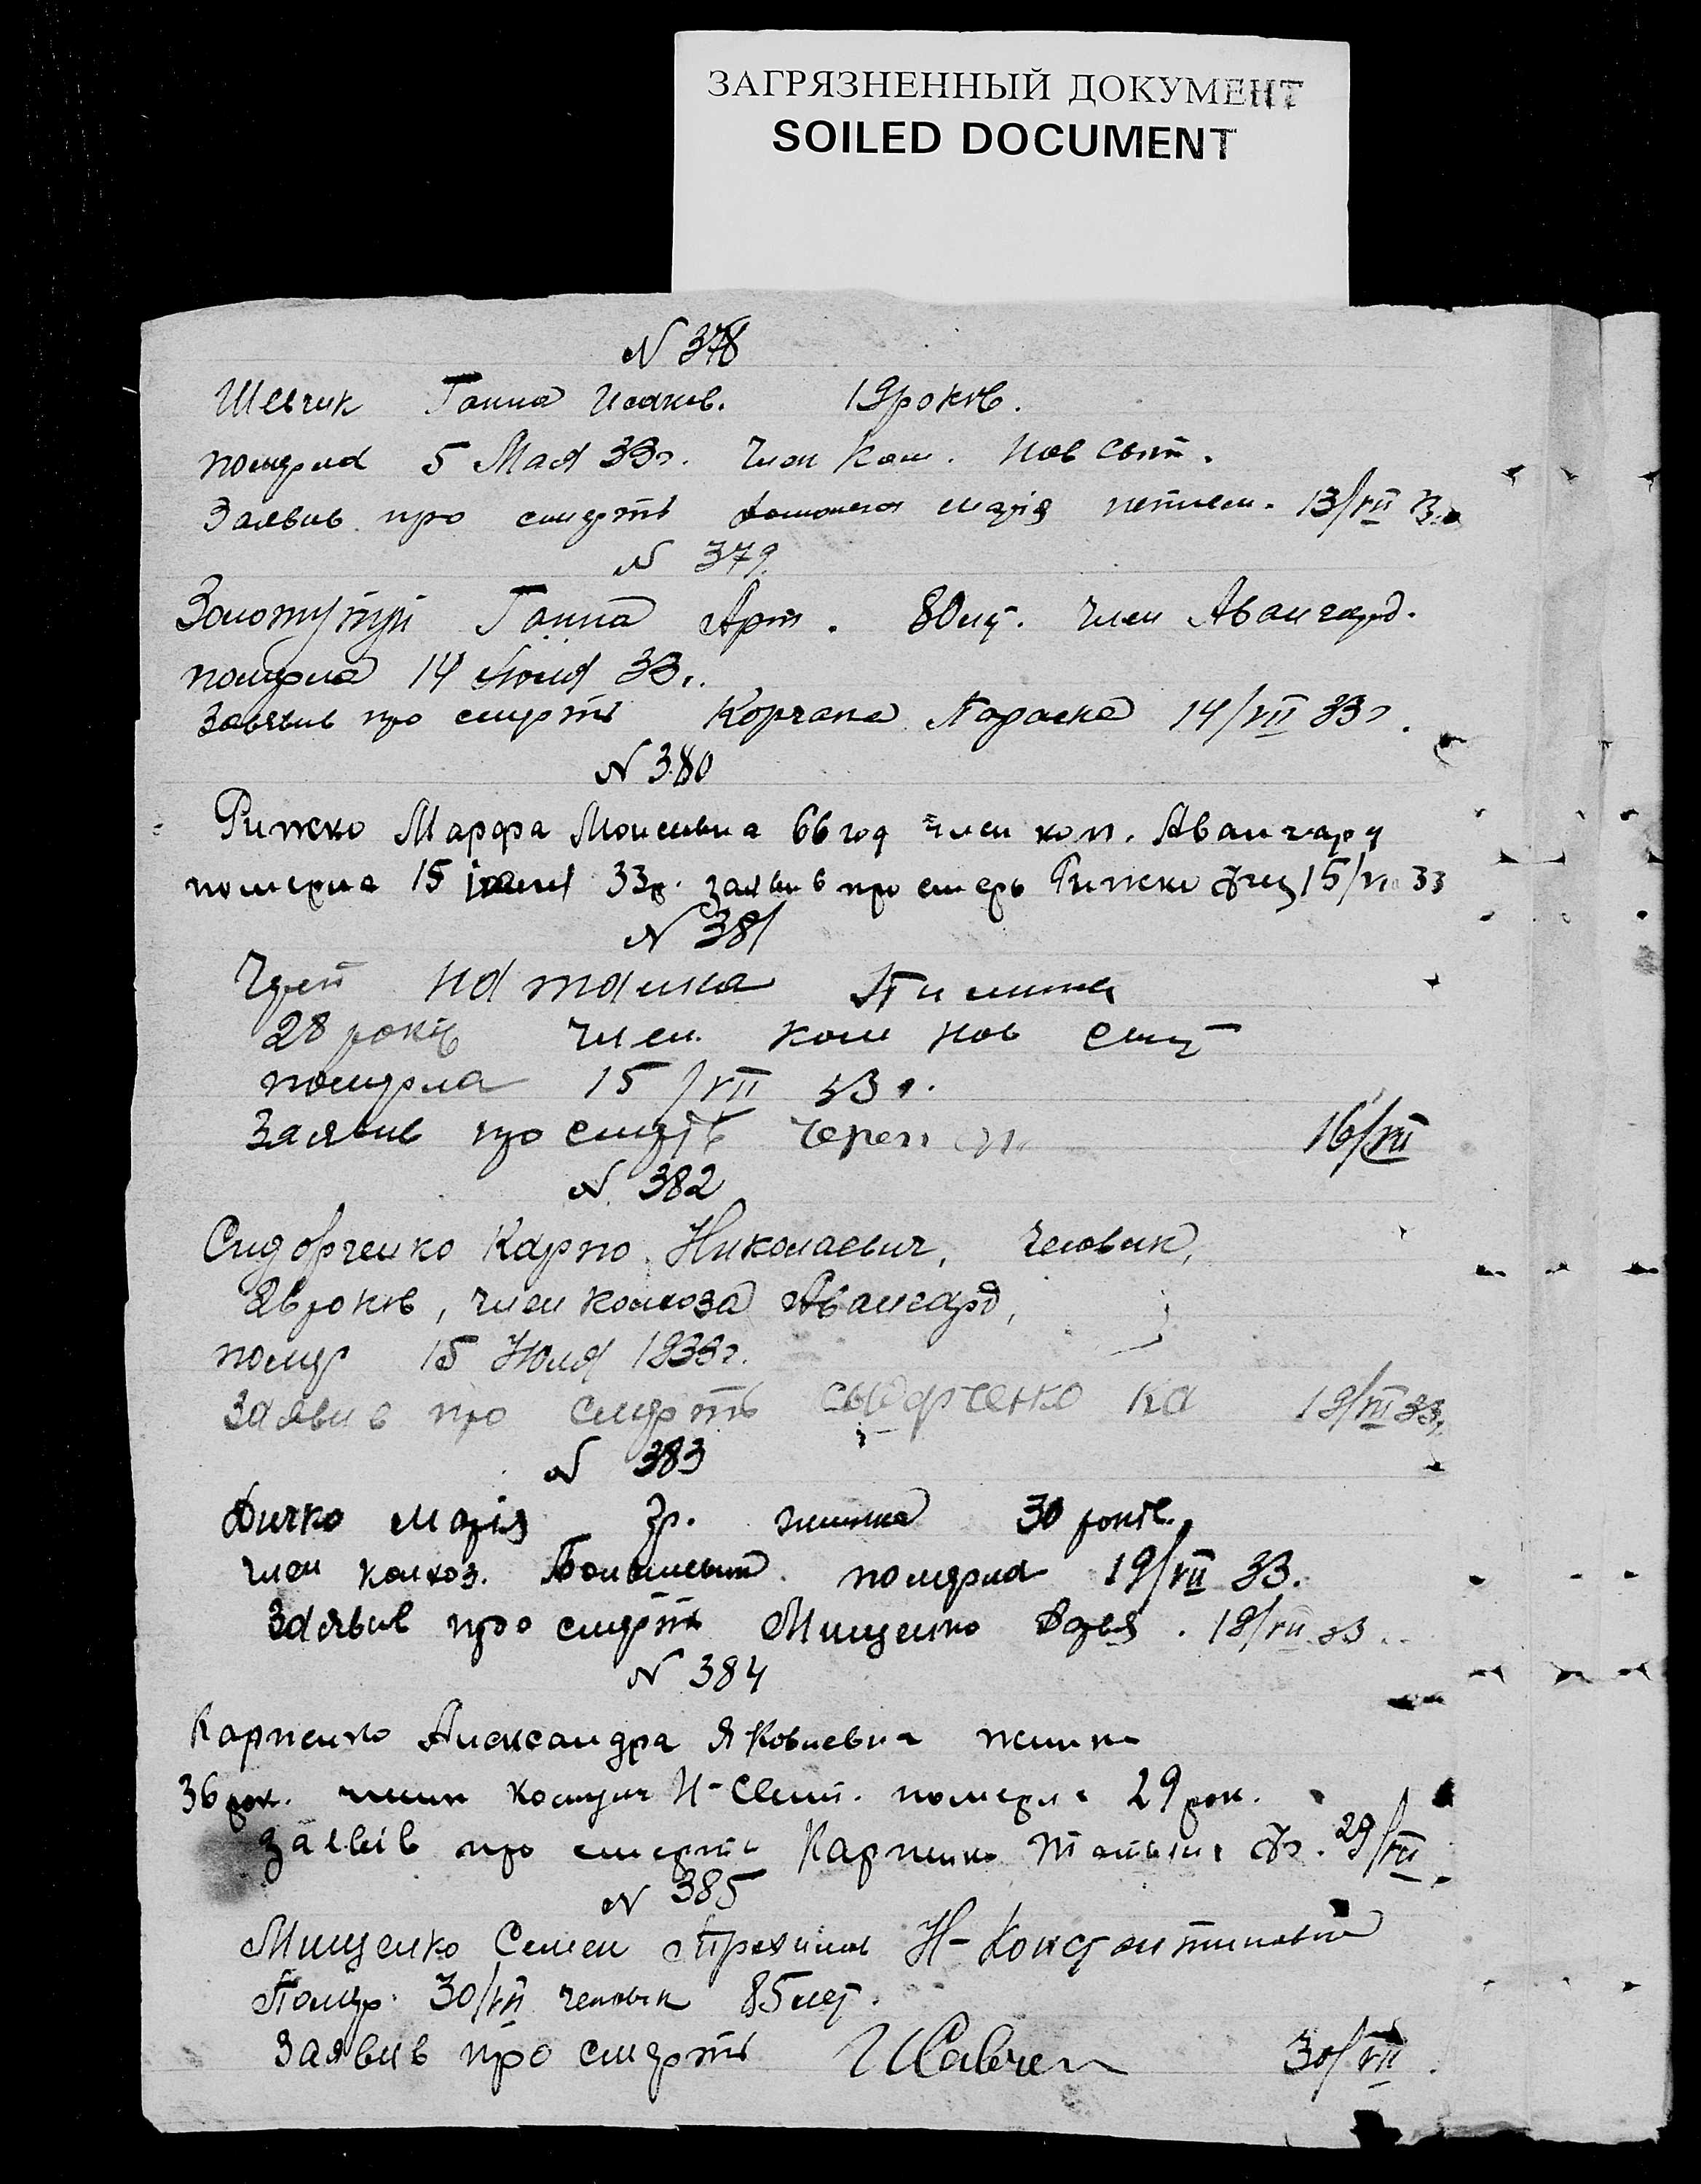 ЗАГРЯЗНЕННЫЙ ДОКУМЕНТ
SOILED DOCUMENT
N 378
Шевчик Ганна Исаков. 19 років.
померла 5 Мая 33г. член ком. Нов свит.
Заявив про смерть марія 13/VII 33
N 379
Ганна Арт. 80 лет. член Авангард.
померла 14 Июля 33г.
Заявив про смерть Корчака Параска 14/VII 33г.
N 380
Рижко Марфа Моисеевна 66 год член кол. Авангард
померла 15 июля 33р. заявив про смерть Рижко 15/VII 33
N 381
Череп Наталка
28 років член ком нов свит
померла 15/VII 33г.
Заявив про смерть Череп 16/VII
N 382
Сидорченко Карпо Николаевич, человик,
років, член колхоза Авангард,
помер 15 Июля 1933г.
Заявив про смерть сыдорченко ка 19/VII 33
N 383
Дичко марія Гр. жинка 30 років.
член колхоз. Большевик померла 19/VII 33.
Заявив про смерть Мищенко Дарья. 19/VII 33
N 384
Карпенко Александра Яковлевна жинка
36 рок. член комуни Н-Свит. померла 29 рок.
заявів про смерть Карпенко Татьяна 29/VII
N 385
Мищенко Семен Н-Константиновка
Помер 30/VII человик 85 лет.
Заявив про смерть 30/VII